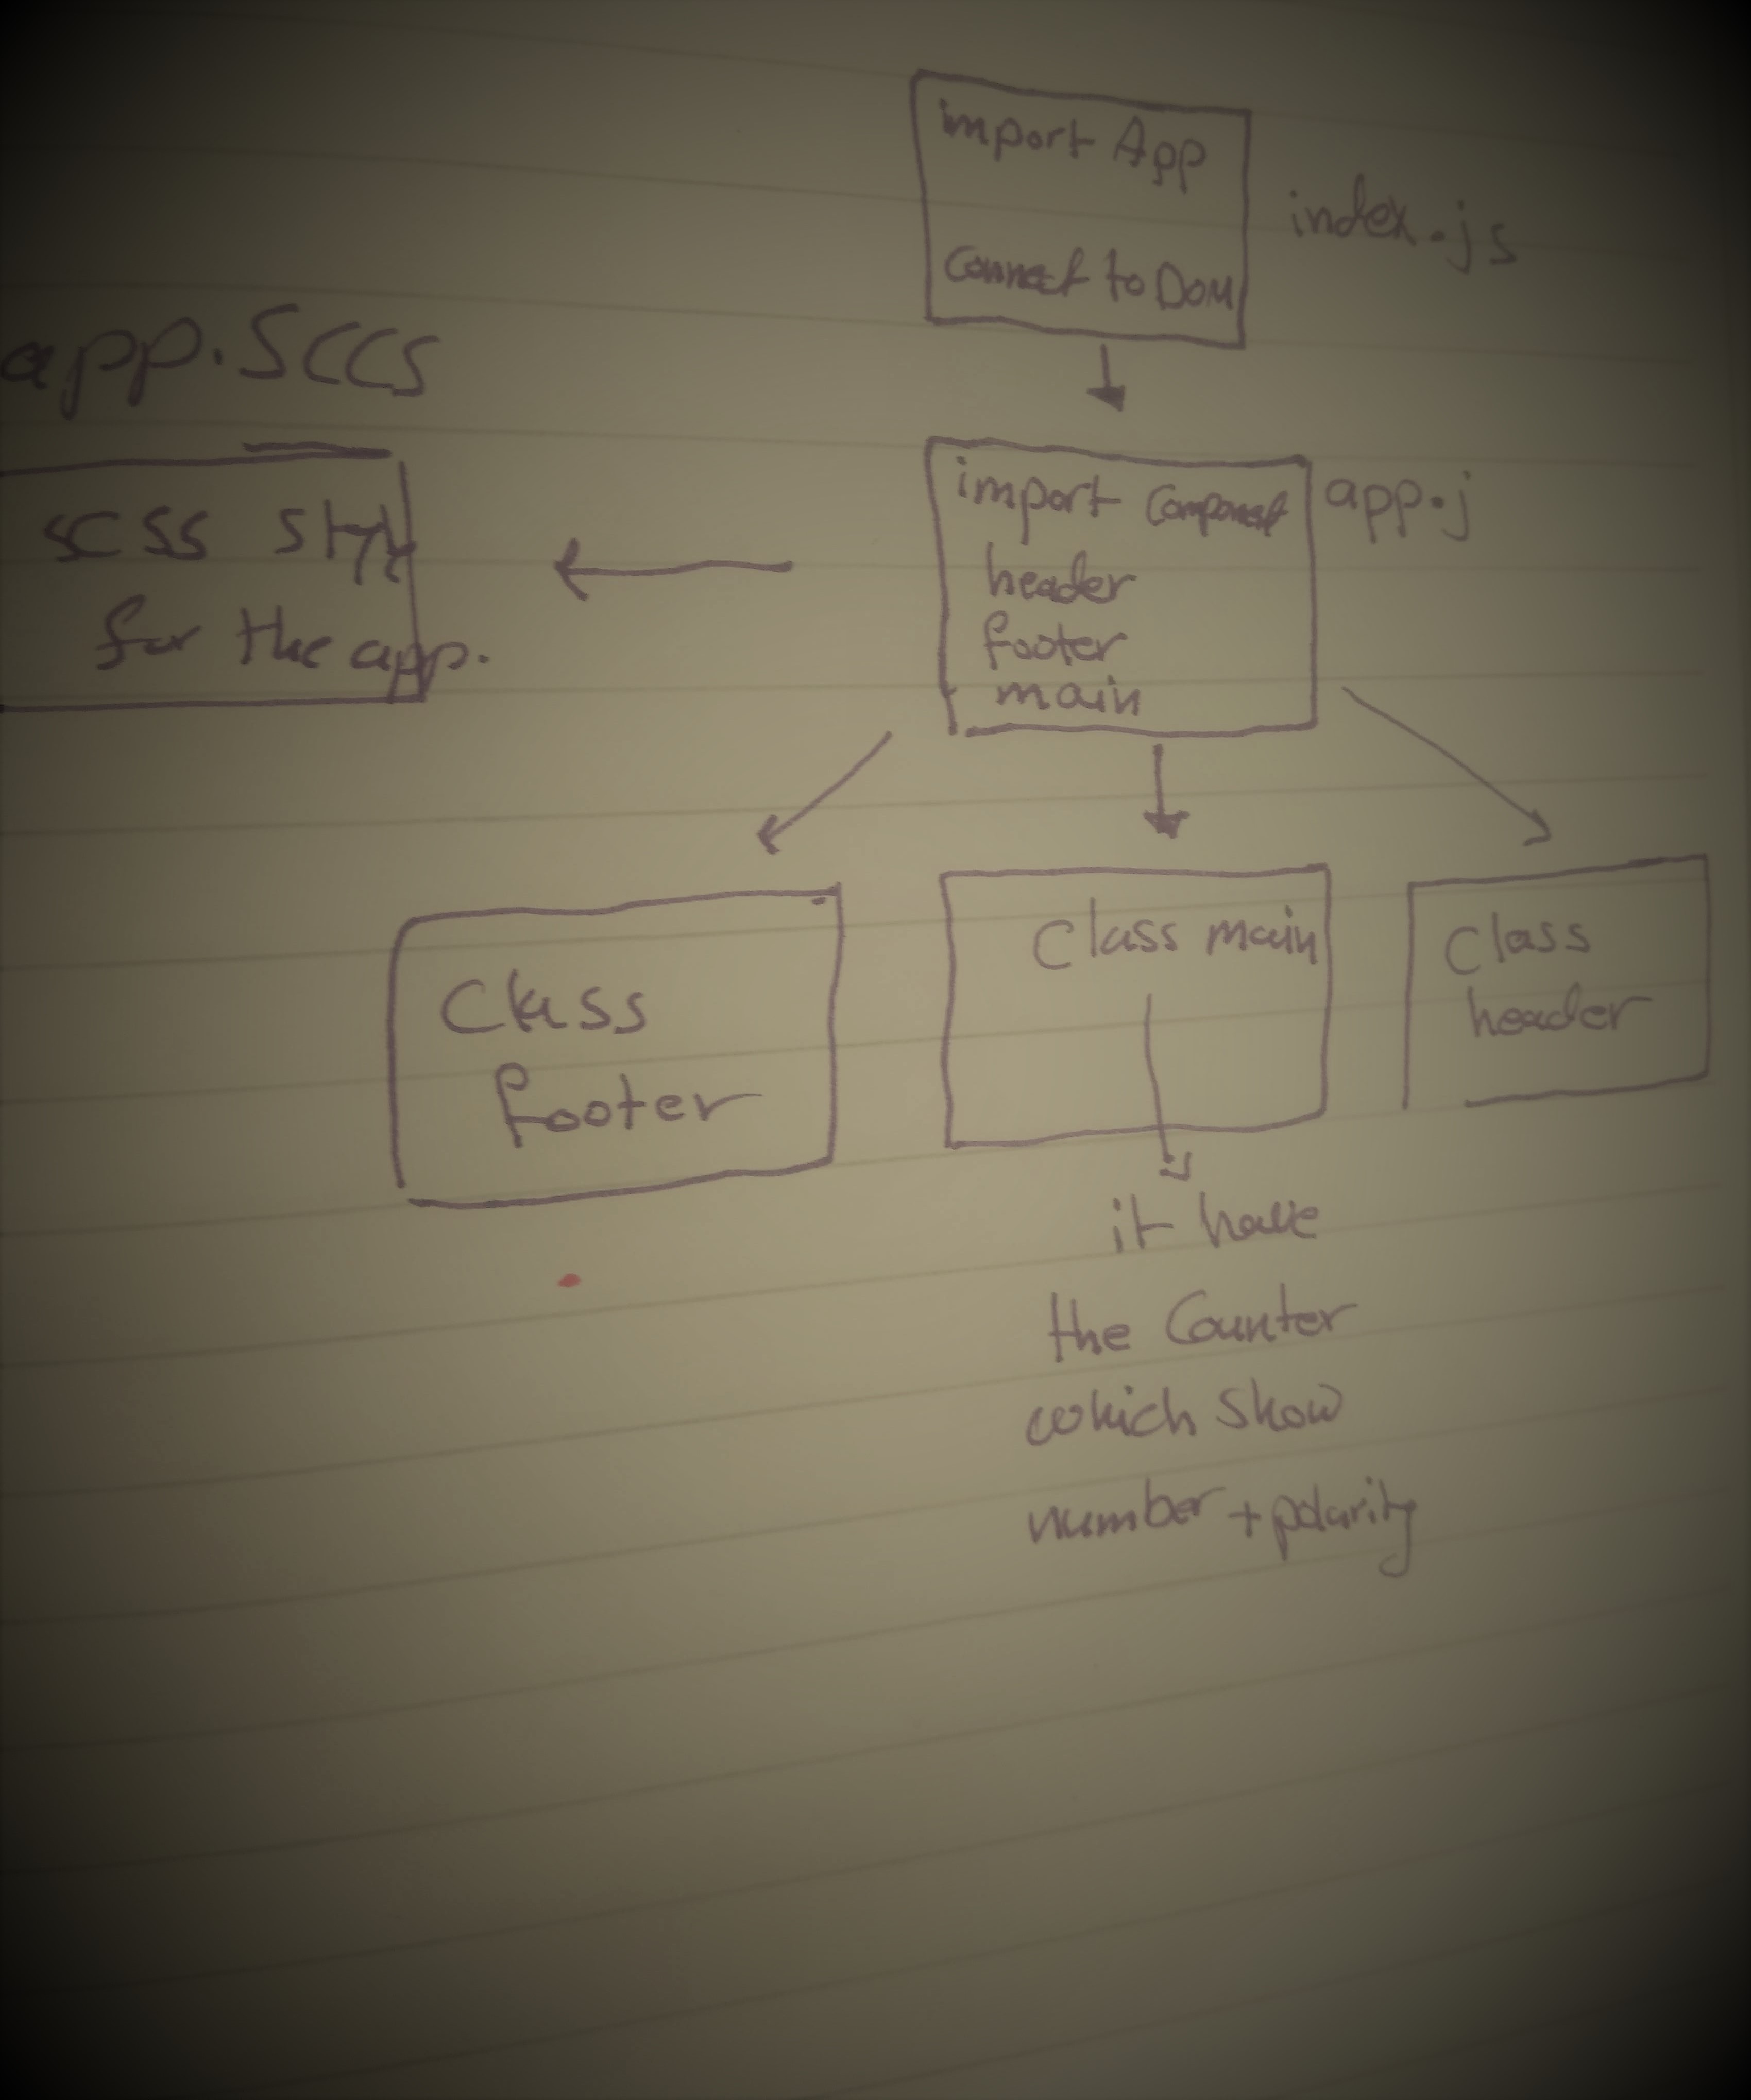 import App
Connect to DOM
index.js
app.SCCS
scss style
for the app.
import Component
header
footer
main
app.j
Class
footer
Class main
Class
header
it have
the Counter
which show
number + polarity